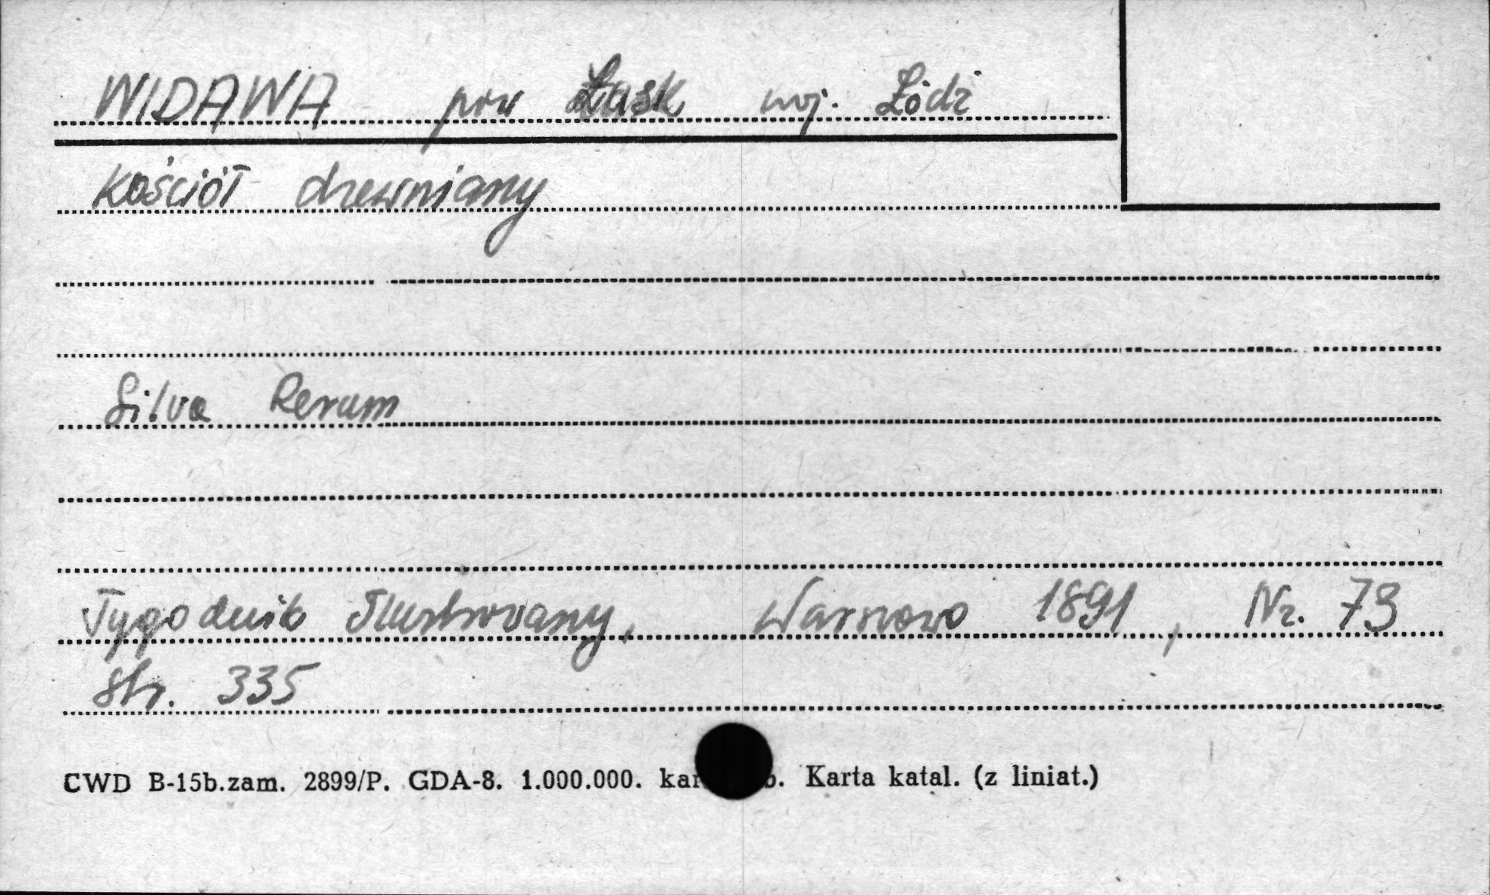 WIDAWA pow Łask woj. Łódź
Kościół drewniany
Silva Rerum
Tygodnik Ilustrowany, Warszawa 1891, Nr. 73
Str. 335
CWD B-15b.zam. 2899/P. GDA-8. 1.000.000. Karta katal. (z liniat.)